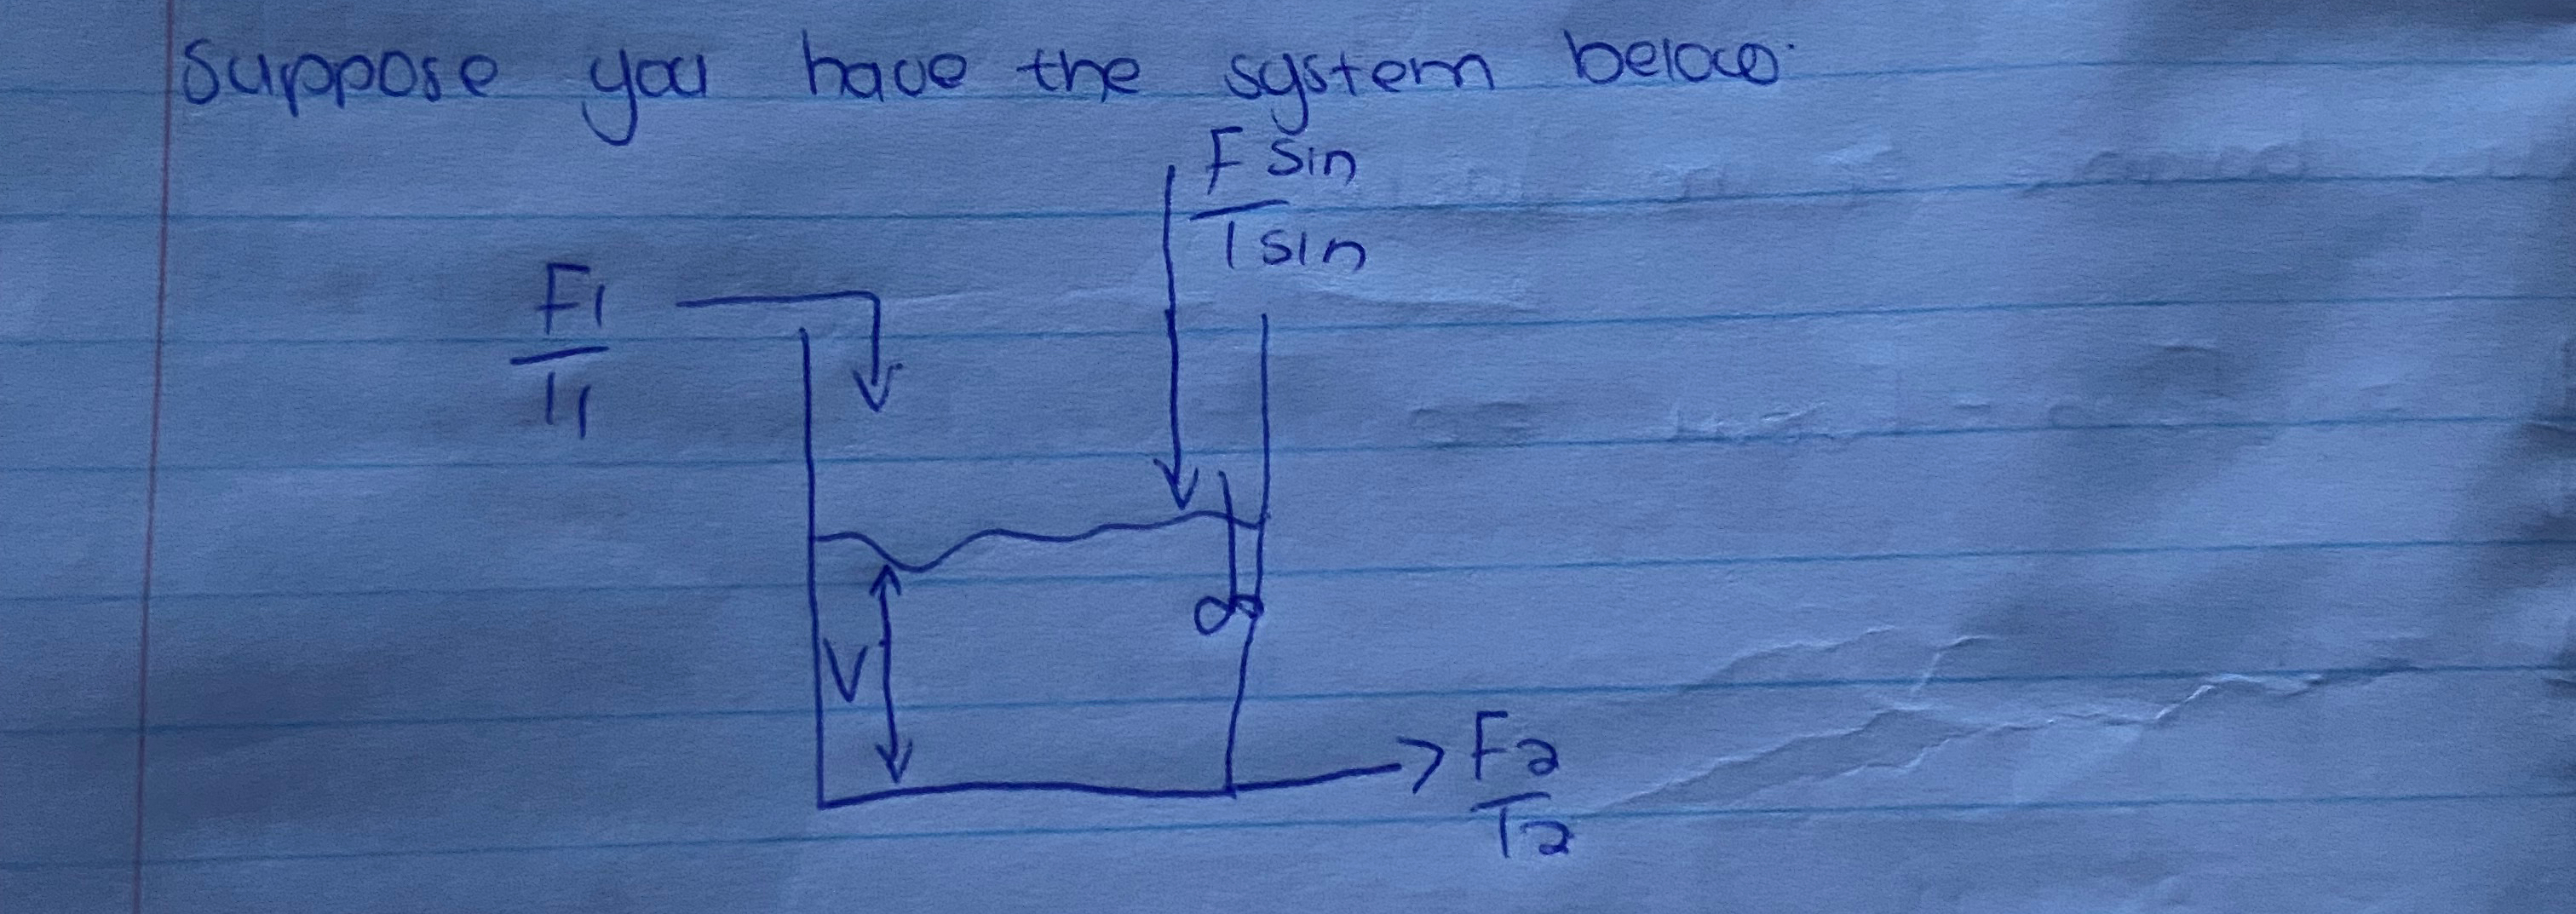 Suppose you have the system below.
F sin
T sin
F1
T1
V
F2
T2